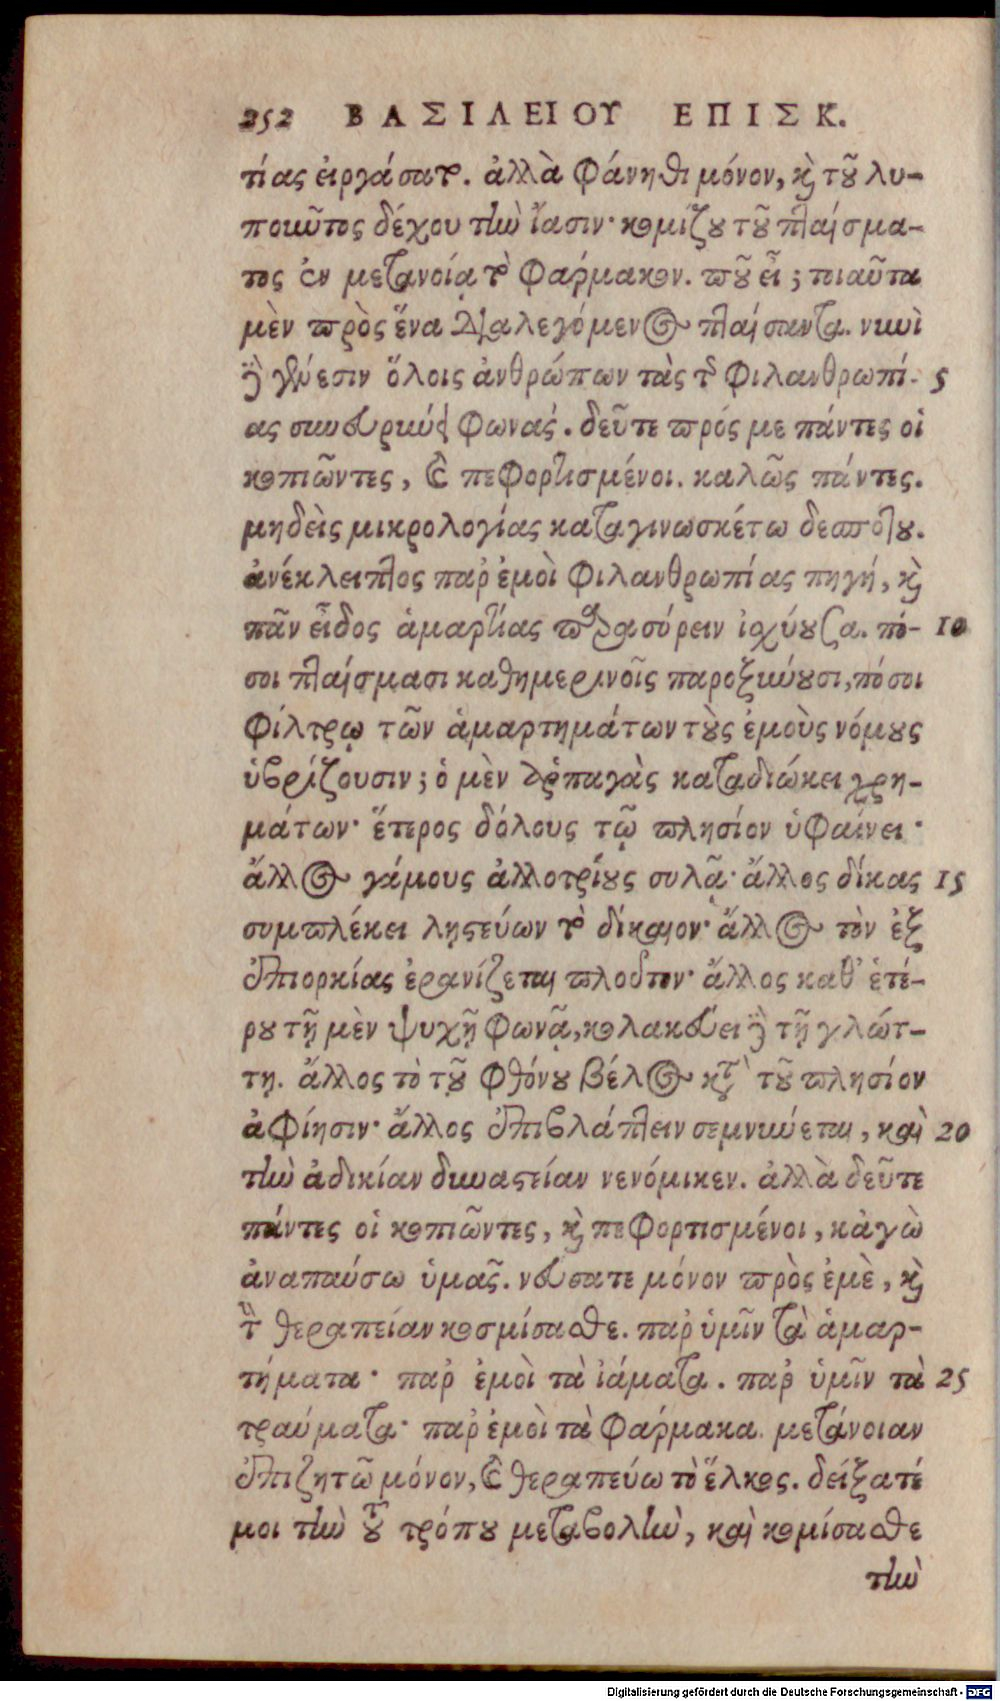 252 ΒΑΣΙΛΕΙΟΥ ΕΠΙΣΚ.
τίας εἰργάσατο. ἀλλὰ φάνηθι μόνον, καὶ τοῦ λυ-
ποιοῦντος δέχου τὴν ἴασιν· κομίζου τοῦ πταίσμα-
τος ἐν μετανοίᾳ τὸ φάρμακον. ποῦ εἶ; τοιαῦτα
μὲν πρὸς ἕνα διαλεγόμενος πταίσαντα. νυνὶ
δὲ γένεσιν ὅλοις ἀνθρώπων τὰς τῆς φιλανθρωπί- 5
ας συνείρει φωνάς. δεῦτε πρός με πάντες οἱ
κοπιῶντες, καὶ πεφορτισμένοι. καλῶς πάντες.
μηδεὶς μικρολογίας καταγινωσκέτω δεσπότου.
ἀνέκλειπτος παρ' ἐμοὶ φιλανθρωπίας πηγή, καὶ
πᾶν εἶδος ἁμαρτίας παρασύρειν ἰσχύουσα. πό- 10
σοι πταίσμασι καθημερινοῖς παροξύνουσι, πόσοι
φίλτρῳ τῶν ἁμαρτημάτων τοὺς ἐμοὺς νόμους
ὑβρίζουσιν; ὁ μὲν ἁρπαγὰς καταδιώκει χρη-
μάτων· ἕτερος δόλους τῷ πλησίον ὑφαίνει·
ἄλλος γάμους ἀλλοτρίους συλᾷ· ἄλλος δίκας 15
συμπλέκει λῃστεύων τὸ δίκαιον· ἄλλος τὸν ἐξ
ἐπιορκίας ἐρανίζεται πλοῦτον· ἄλλος καθ' ἑτέ-
ρου τῇ μὲν ψυχῇ φωνᾷ, κολακεύει δὲ τῇ γλώτ-
τῃ. ἄλλος τὸ τοῦ φθόνου βέλος κατὰ τοῦ πλησίον
ἀφίησιν· ἄλλος ἐπιβλάπτειν σεμνύνεται, καὶ 20
τὴν ἀδικίαν δυναστείαν νενόμικεν. ἀλλὰ δεῦτε
πάντες οἱ κοπιῶντες, καὶ πεφορτισμένοι, κἀγὼ
ἀναπαύσω ὑμᾶς. νεύσατε μόνον πρὸς ἐμὲ, καὶ
τὴν θεραπείαν κοσμίσασθε. παρ' ὑμῖν τὰ ἁμαρ-
τήματα· παρ' ἐμοὶ τὰ ἰάματα. παρ' ὑμῖν τὰ 25
τραύματα· παρ' ἐμοὶ τὰ φάρμακα. μετάνοιαν
ἐπιζητῶ μόνον, καὶ θεραπεύω τὸ ἕλκος. δείξατέ
μοι τὴν τοῦ τρόπου μεταβολὴν, καὶ κομίσασθε
τὴν
Digitalisierung gefördert durch die Deutsche Forschungsgemeinschaft - DFG